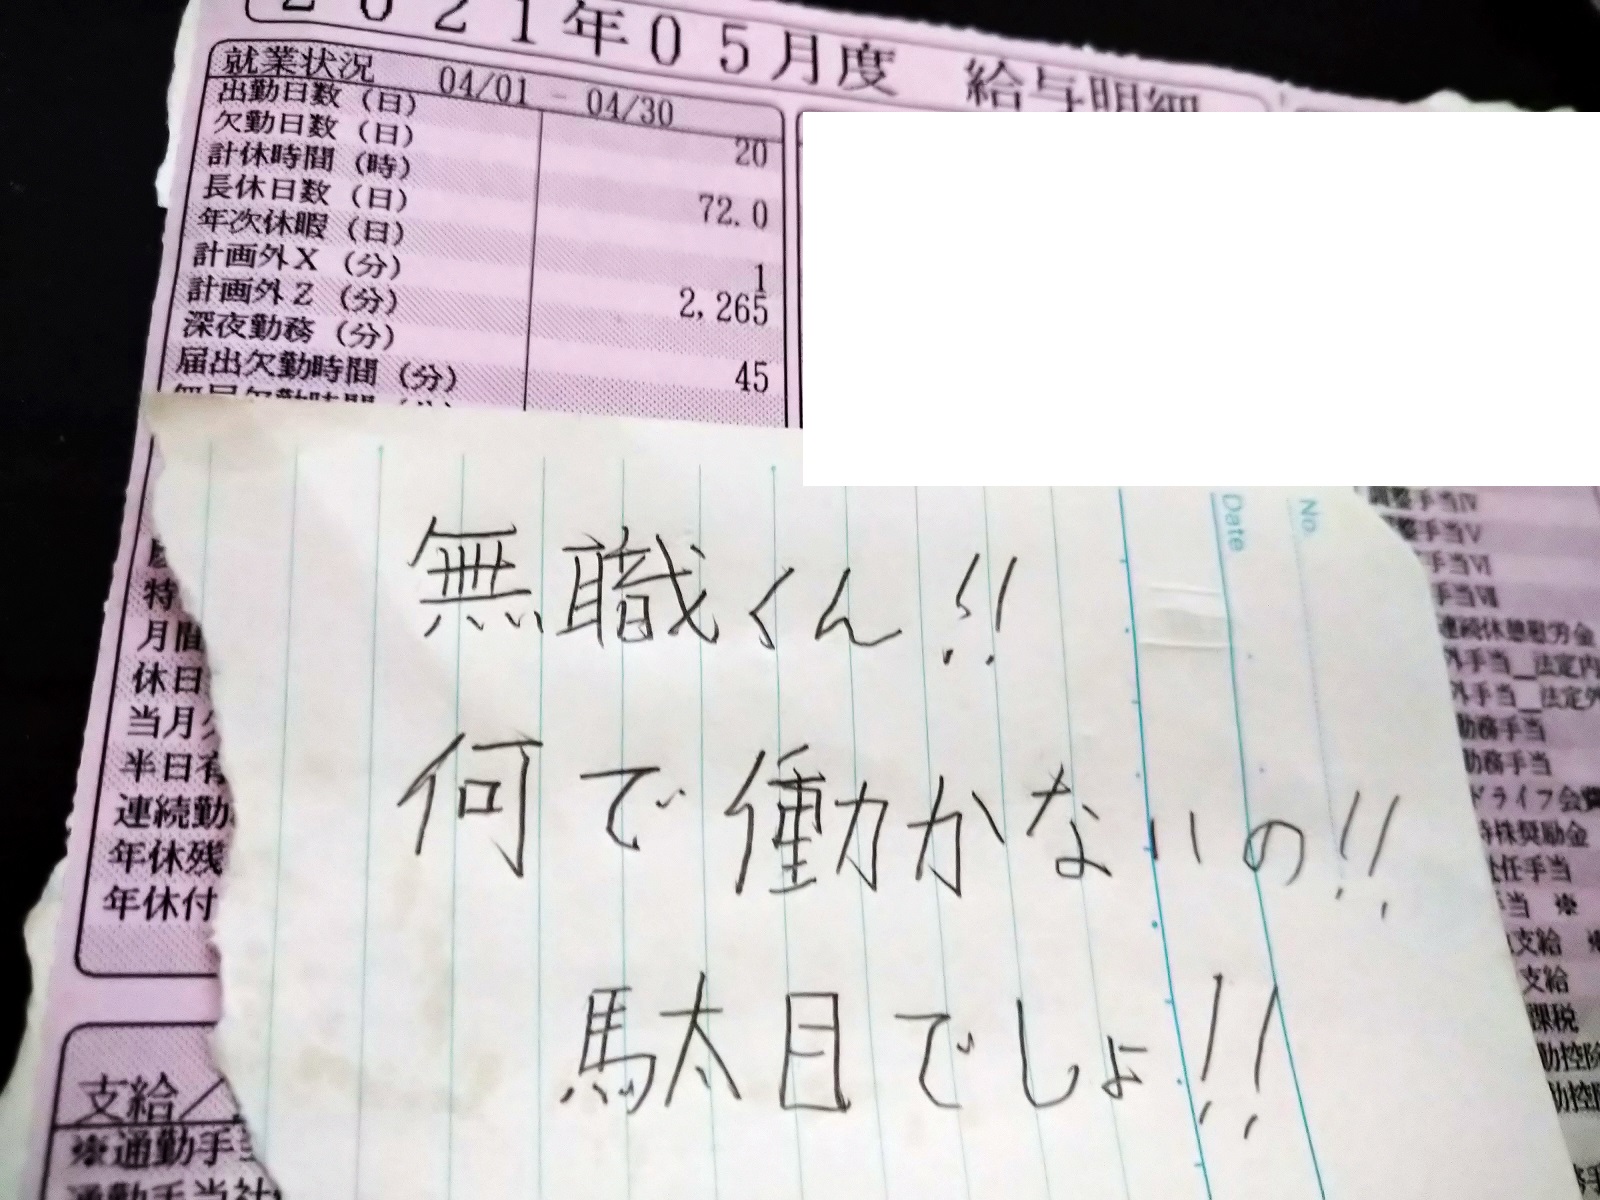 2021年05月度 給与明細
就業状況 04/01 - 04/30
出勤日数（日） 20
欠勤日数（日）
計休時間（時） 72.0
長休日数（日）
年次休暇（日） 1
計画外X（分） 2,265
計画外Z（分）
深夜勤務（分） 45
届出欠勤時間（分）
無職くん!!
何で働かないの!!
駄目でしょ!!
No.
Date
特
月間
休日
当月
半日有
連続勤
年休残
年休付
支給／
※通勤手当
調整手当Ⅳ
整手当Ⅴ
手当Ⅵ
手当Ⅶ
連続休憩慰労金
外手当_法定内
外手当_法定外
勤務手当
勤務手当
ドライブ会費
特株奨励金
社任手当
手当 ※
支給 ※
支給
課税
勤控除
勤控除